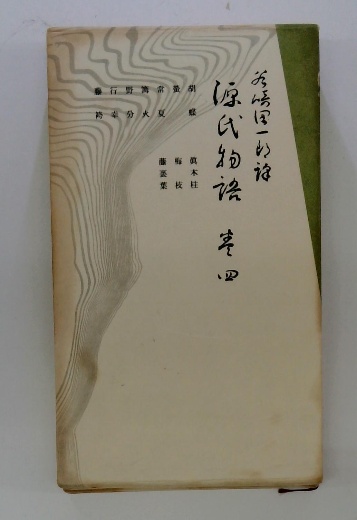 谷崎潤一郎訳
源氏物語 巻四
胡蝶
螢
常夏
篝火
野分
行幸
藤袴
眞木柱
梅枝
藤裏葉